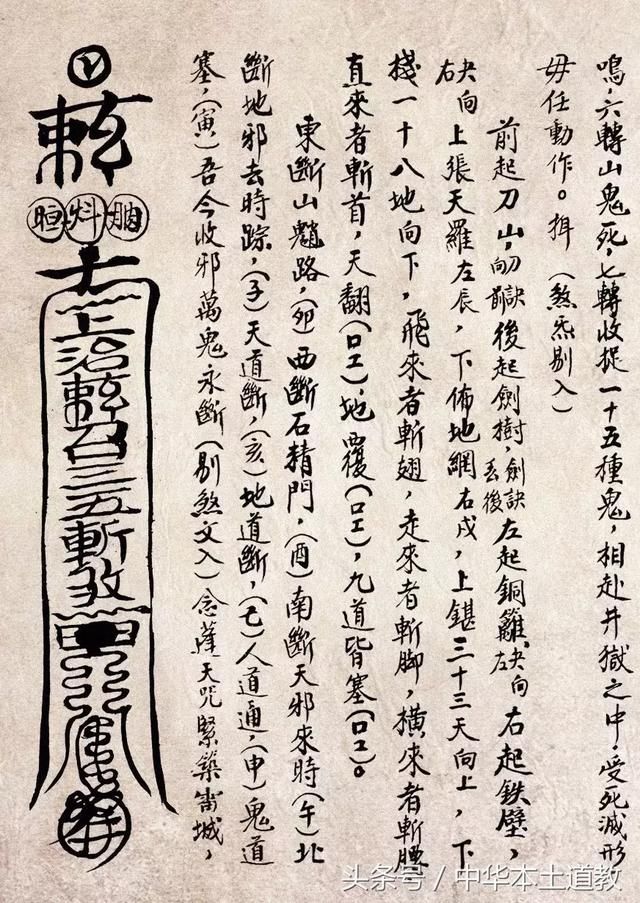 鳴，六轉山鬼死，七轉收捉一十五種鬼，相赴井獄之中，受死滅形
毋任動作。揖（煞炁剔入）
前起刀山，向前後起劍樹，劍訣丟後左起銅籬，左右起鐵壁，
向上張天羅左辰，下佈地網右戌，上鍖三十三天向上，下
棧一十八地向下，飛來者斬翅，走來者斬脚，橫來者斬腰
直來者斬首，天翻（口工），地覆（口工），九道皆塞（口工）。
東斷山魈路，（卯）西斷石精門，（酉）南斷天邪來時（午）北
斷地邪去時踪，（子）天道斷，（亥）地道斷，（己）人道通，（申）鬼道
塞，（寅）吾今收邪萬鬼永斷（剔煞文入）念蓬天咒緊築
城，
上治敕召三五斬煞
头条号/中华本土道教